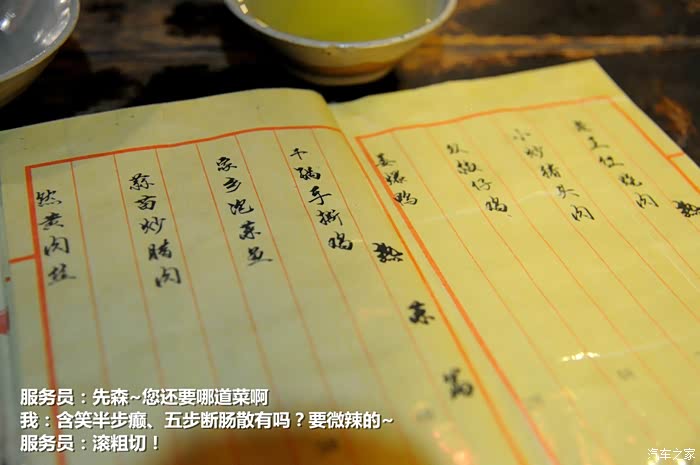 热
老王红烧肉
小炒猪头肉
仔鸡
姜爆鸭
热菜篇
干锅手撕鸡
家乡泡菜
蒜苗炒腊肉
黄肉丝
服务员：先森~您还要哪道菜啊
我：含笑半步癫、五步断肠散有吗？要微辣的~
服务员：滚粗切！
汽车之家